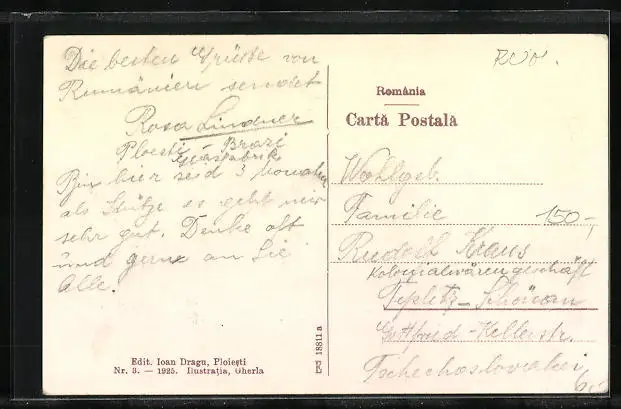 Die besten Grüsse von
Rumänien sendet
Rosa Lindner
Ploesti - Brazi
Glasfabrik
Bin hier seid 3 Monaten
als Stütze es geht mir
sehr gut. Denke oft
und gerne an Sie
Alle.
Edit. Ioan Dragu, Ploiești
Nr. 3. — 1925. Ilustrația, Gherla
18811a
ROM.
România
Cartă Postală
Wohlgeb.
Familie
150,-
Rudolf Kraus
Kolonialwarengeschäft
Teplitz-Schönau
Gottfried-Kellerstr.
Tschechoslovakei